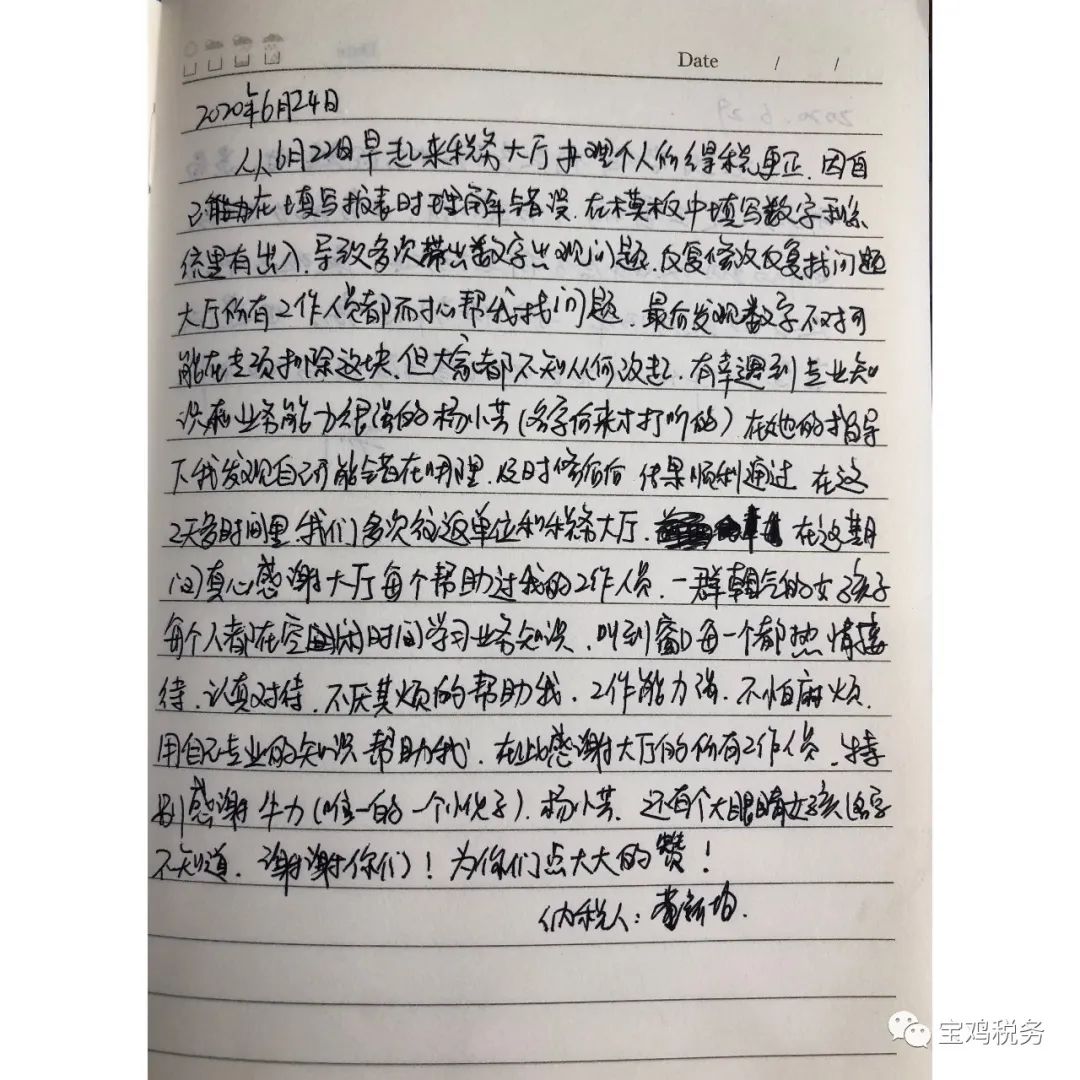 Date / /
2020年6月24日
从6月22日早起来税务大厅办理个人所得税更正.因自
己能力在填写报表时理解错误.在模板中填写数字和系
统里有出入.导致多次带出数字出现问题.反复修改反复找问题
大厅所有工作人员都耐心帮我找问题.最后发现数字不对可
能在专项扣除这块.但大家都不知从何改起.有幸遇到专业知
识和业务能力很强的杨小芸(名字后来才打听的)在她的指导
下我发现自己可能错在哪里.及时修后 结果顺利通过 在这
2天多时间里我们多次往返单位和税务大厅. 在这期
间真心感谢大厅每个帮助过我的工作人员.一群朝气的女孩子
每个人都在空闲时间学习业务知识.叫到窗口每一个都热情接
待.认真对待.不厌其烦的帮助我.工作能力强.不怕麻烦.
用自己专业的知识帮助我.在此感谢大厅的所有工作人员.特
别感谢牛力(唯一的一个小伙子).杨小芸.还有个大眼睛女孩(名字
不知道.谢谢你们)!为你们点大大的赞!
纳税人:
宝鸡税务